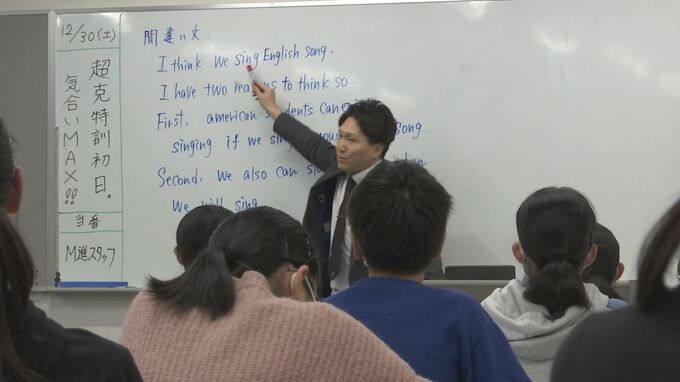 12/30(土)
超克特訓初日。
気合いMAX!!
当番
M進スタッフ
間違い文.
I think we sing English song.
I have two reasons to think so.
First, american can song.
singing if we sing
Second, we also can
we will sing